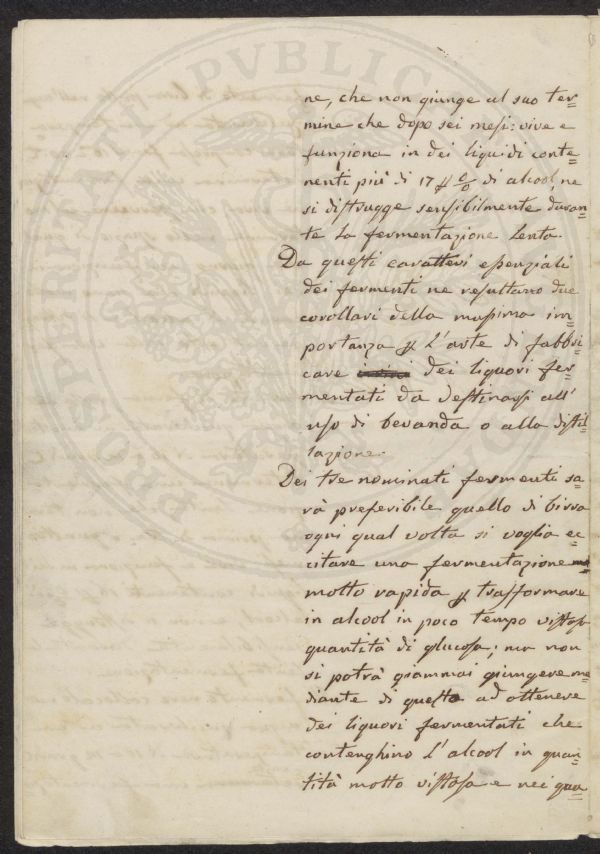 ne, che non giunge al suo ter=
mine che dopo sei mesi: vive e
funziona in dei liquidi conte=
nenti più di 17 p % di alcool, ne
si distrugge sensibilmente duran=
te la fermentazione lenta.
Da questi caratteri essenziali
dei fermenti ne resultano due
corollari della massima im=
portanza p l'arte di fabbri=
care dei liquori fer=
mentati da destinarsi all'
uso di bevanda o alla distil=
lazione.
Dei tre nominati fermenti sa=
rà preferibile quello di birra
ogni qual volta si voglia ec=
citare una fermentazione
molto rapida p trasformare
in alcool in poco tempo vistosa
quantità di glucosa; ma non
si potrà giammai giungere me=
diante di questo ad ottenere
dei liquori fermentati che
contenghino l'alcool in quan=
tità molto vistosa e nei qua=
PVBLIC
PROSPERITAT